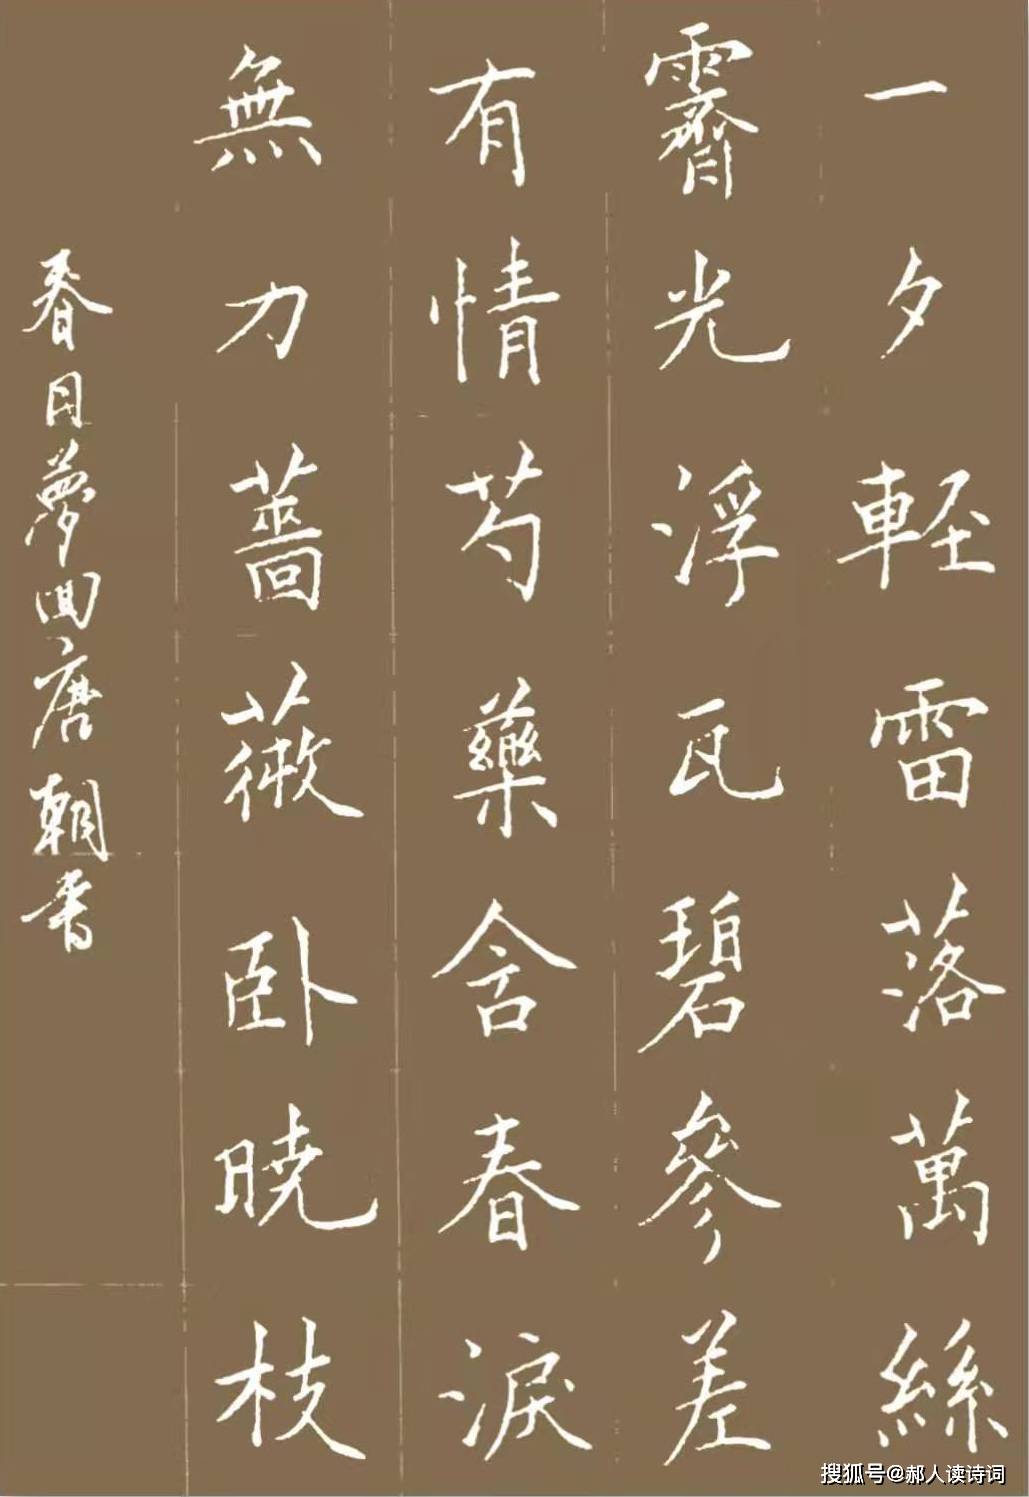 一夕輕雷落萬絲
霽光浮瓦碧參差
有情芍藥含春淚
無力薔薇卧曉枝
春日夢回唐朝書
搜狐号@郝人读诗词